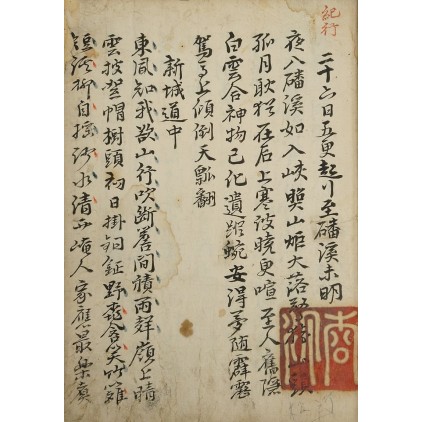 紀行
二十六日五更起行至磻溪未明
夜入磻溪如入峽照山炬火落驚猿山頭
孤月耿猶在石上寒波曉更喧至人舊隱
白雲合神物已化遺蹤蜿安得夢隨霹靂
駕馬上傾倒天瓢翻
新城道中
東風知我欲山行吹斷簷間積雨聲嶺上晴
雲披絮帽樹頭初日掛銅鉦野桃含笑竹籬
短溪柳自搖沙水清西崦人家應最樂煮